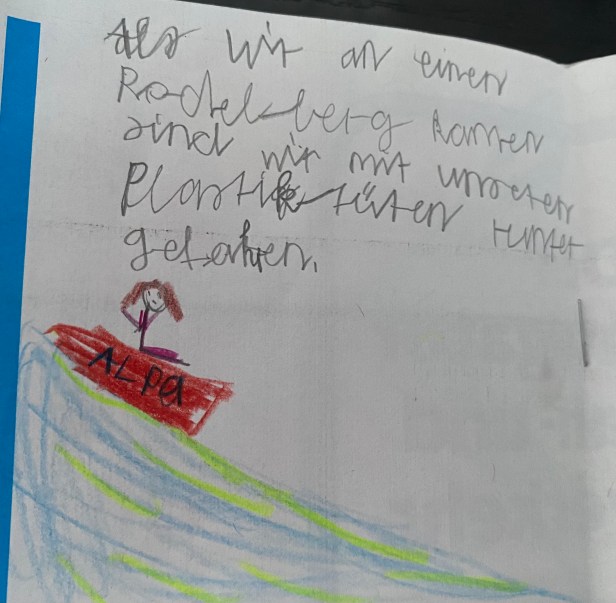 Als wir an einen
Rodel-berg kamen
sind wir mit unseren
Plastik-tüten runter
gefahren.
ALPA